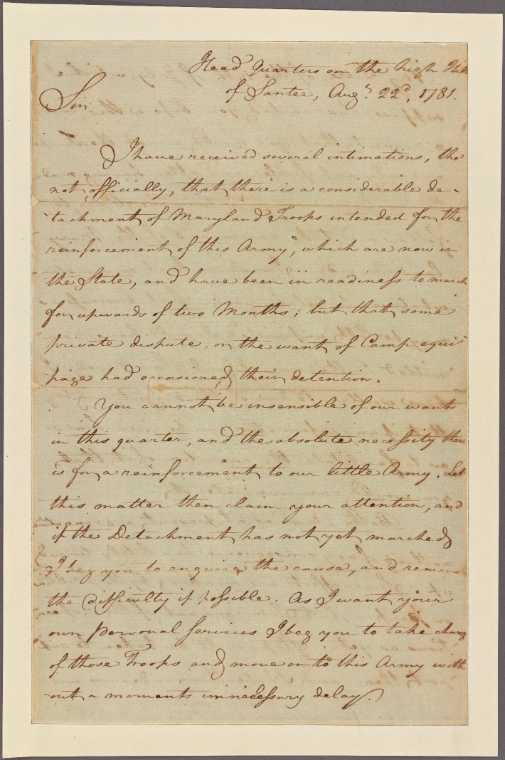 Head Quarters on the high Hills
of Santee, Augt. 22d, 1781.
Sir
I have received several intimations, tho
not officially, that there is a considerable de-
tachment of Maryland Troops intended for the
reinforcement of this Army, which are now in
the State, and have been in readiness to march
for upwards of two Months; but that some
private dispute, or the want of Camp equi-
page had occasioned their detention.
You cannot be insensible of our wants
in this quarter, and the absolute necessity there
is for a reinforcement to our little Army. Let
this matter then claim your attention, and
if the Detachment has not yet marched
I beg you to enquire the cause, and remove
the difficulty if possible. As I want your
own personal services I beg you to take charge
of those Troops and move on to this Army with
out a moments unnecessary delay.